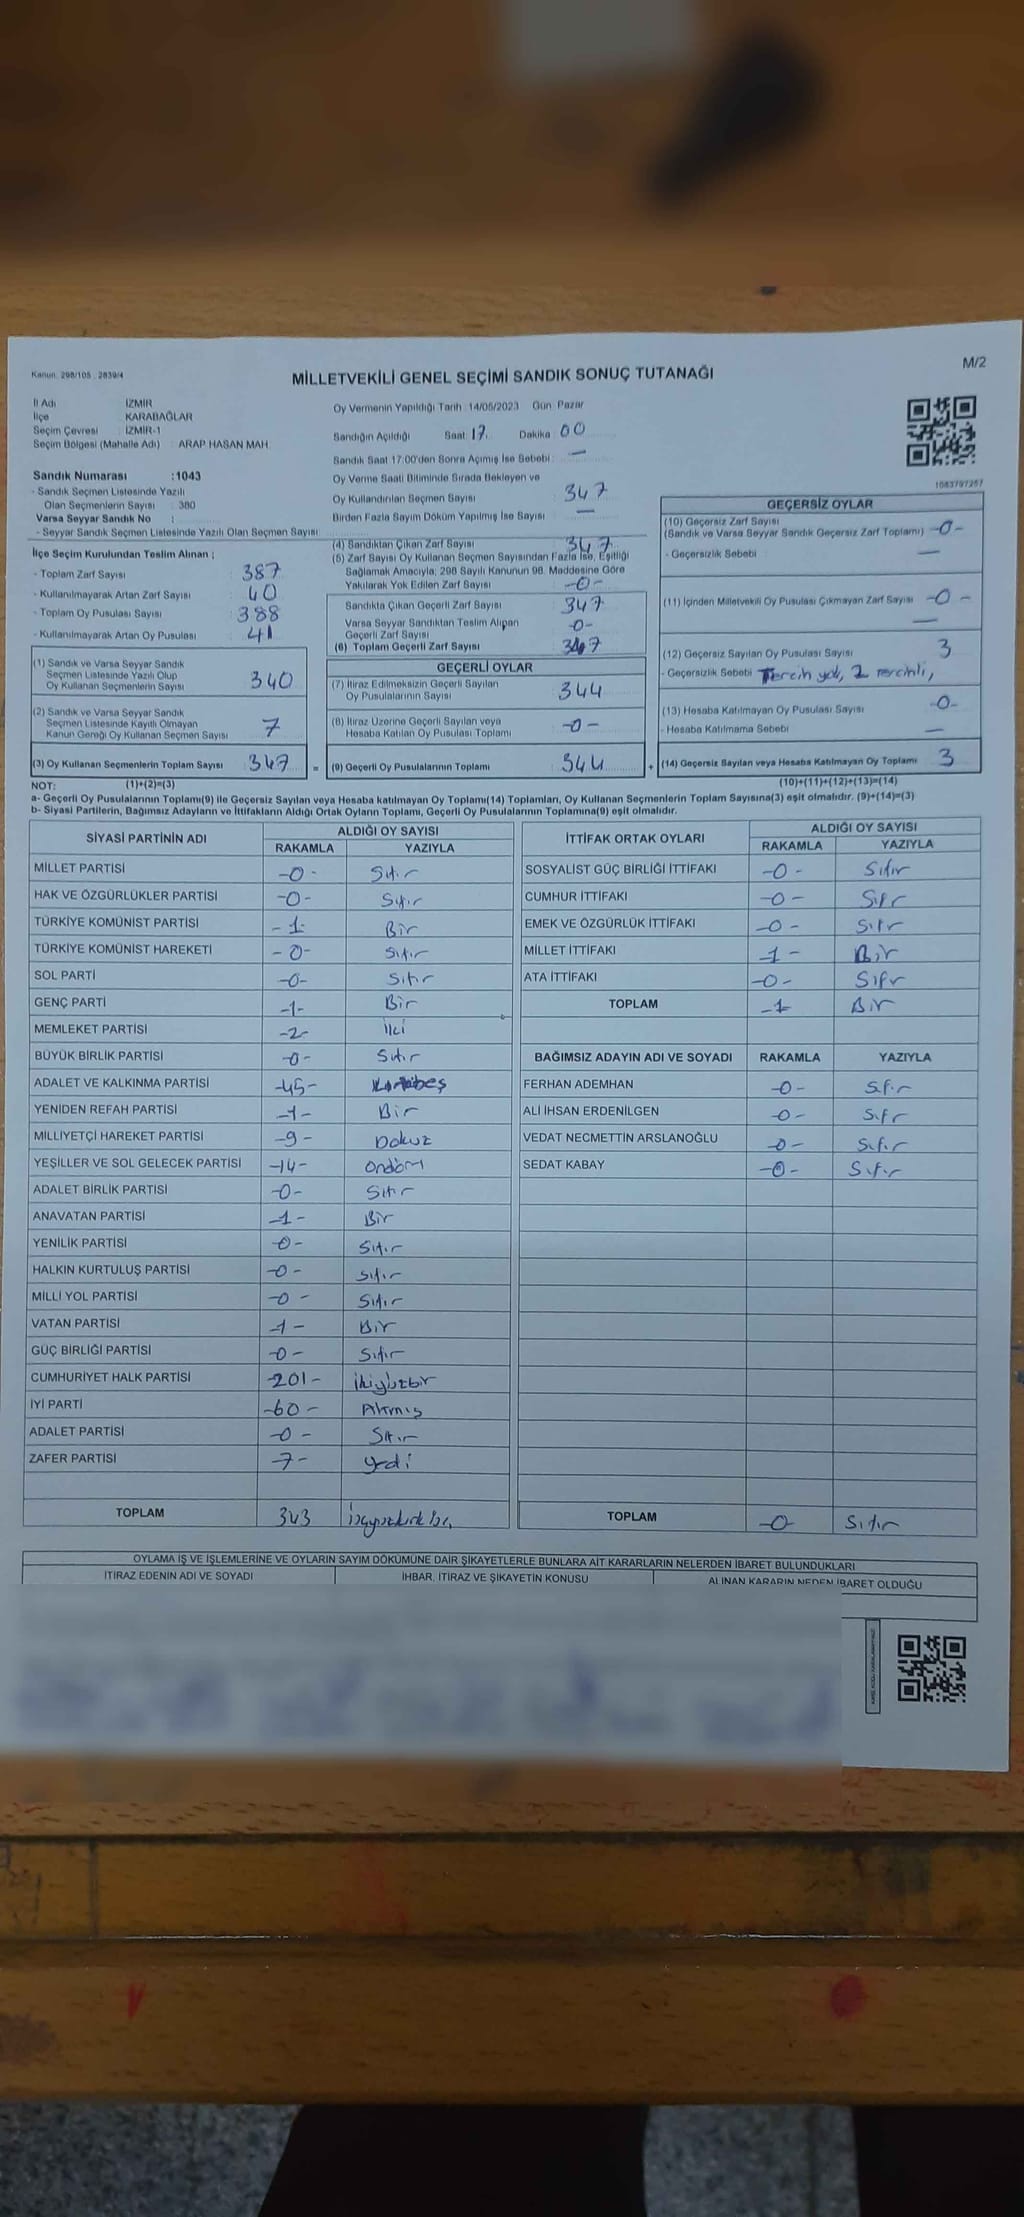 Kanun: 298/105 : 2839/4
MİLLETVEKİLİ GENEL SEÇİMİ SANDIK SONUÇ TUTANAĞI
M/2
İl Adı İZMİR
İlçe KARABAĞLAR
Seçim Çevresi : İZMİR-1
Seçim Bölgesi (Mahalle Adı) : ARAP HASAN MAH.
Sandık Numarası :1043
- Sandık Seçmen Listesinde Yazılı
Olan Seçmenlerin Sayısı : 380
Varsa Seyyar Sandık No :
- Seyyar Sandık Seçmen Listesinde Yazılı Olan Seçmen Sayısı
İlçe Seçim Kurulundan Teslim Alınan ;
- Toplam Zarf Sayısı : 387
- Kullanılmayarak Artan Zarf Sayısı : 40
- Toplam Oy Pusulası Sayısı : 388
- Kullanılmayarak Artan Oy Pusulası : 41
(1) Sandık ve Varsa Seyyar Sandık
Seçmen Listesinde Yazılı Olup
Oy Kullanan Seçmenlerin Sayısı 340
(2) Sandık ve Varsa Seyyar Sandık
Seçmen Listesinde Kayıtlı Olmayan
Kanun Gereği Oy Kullanan Seçmen Sayısı 7
(3) Oy Kullanan Seçmenlerin Toplam Sayısı 347 =
Oy Vermenin Yapıldığı Tarih :14/05/2023 Gün Pazar
Sandığın Açıldığı Saat 17 Dakika 00
Sandık Saat 17:00'den Sonra Açılmış İse Sebebi : —
Oy Verme Saati Bitiminde Sırada Bekleyen ve
Oy Kullandırılan Seçmen Sayısı : 347
Birden Fazla Sayım Döküm Yapılmış İse Sayısı : —
(4) Sandıktan Çıkan Zarf Sayısı : 347
(5) Zarf Sayısı Oy Kullanan Seçmen Sayısından Fazla İse, Eşitliği
Sağlamak Amacıyla, 298 Sayılı Kanunun 98. Maddesine Göre
Yakılarak Yok Edilen Zarf Sayısı : -0-
Sandıkta Çıkan Geçerli Zarf Sayısı : 347
Varsa Seyyar Sandıktan Teslim Alınan
Geçerli Zarf Sayısı : -0-
(6) Toplam Geçerli Zarf Sayısı : 347
GEÇERLİ OYLAR
(7) İtiraz Edilmeksizin Geçerli Sayılan
Oy Pusulalarının Sayısı : 344
(8) İtiraz Üzerine Geçerli Sayılan veya
Hesaba Katılan Oy Pusulası Toplamı : -0-
(9) Geçerli Oy Pusulalarının Toplamı : 344 +
1083797257
GEÇERSİZ OYLAR
(10) Geçersiz Zarf Sayısı
(Sandık ve Varsa Seyyar Sandık Geçersiz Zarf Toplamı) -0-
- Geçersizlik Sebebi : —
(11) İçinden Milletvekili Oy Pusulası Çıkmayan Zarf Sayısı -0-
—
(12) Geçersiz Sayılan Oy Pusulası Sayısı 3
- Geçersizlik Sebebi Tercih yok, 2 tercihli,
(13) Hesaba Katılmayan Oy Pusulası Sayısı -0-
- Hesaba Katılmama Sebebi —
(14) Geçersiz Sayılan veya Hesaba Katılmayan Oy Toplamı 3
NOT: (1)+(2)=(3) (10)+(11)+(12)+(13)=(14)
a- Geçerli Oy Pusulalarının Toplamı(9) ile Geçersiz Sayılan veya Hesaba katılmayan Oy Toplamı(14) Toplamları, Oy Kullanan Seçmenlerin Toplam Sayısına(3) eşit olmalıdır. (9)+(14)=(3)
b- Siyasi Partilerin, Bağımsız Adayların ve İttifakların Aldığı Ortak Oyların Toplamı, Geçerli Oy Pusulalarının Toplamına(9) eşit olmalıdır.
SİYASİ PARTİNİN ADI ALDIĞI OY SAYISI
RAKAMLA YAZIYLA
MİLLET PARTİSİ -0- Sıfır
HAK VE ÖZGÜRLÜKLER PARTİSİ -0- Sıfır
TÜRKİYE KOMÜNİST PARTİSİ -1- Bir
TÜRKİYE KOMÜNİST HAREKETİ -0- Sıfır
SOL PARTİ -0- Sıfır
GENÇ PARTİ -1- Bir
MEMLEKET PARTİSİ -2- İki
BÜYÜK BİRLİK PARTİSİ -0- Sıfır
ADALET VE KALKINMA PARTİSİ -45- Kırkbeş
YENİDEN REFAH PARTİSİ -1- Bir
MİLLİYETÇİ HAREKET PARTİSİ -9- Dokuz
YEŞİLLER VE SOL GELECEK PARTİSİ -14- Ondört
ADALET BİRLİK PARTİSİ -0- Sıfır
ANAVATAN PARTİSİ -1- Bir
YENİLİK PARTİSİ -0- Sıfır
HALKIN KURTULUŞ PARTİSİ -0- Sıfır
MİLLİ YOL PARTİSİ -0- Sıfır
VATAN PARTİSİ -1- Bir
GÜÇ BİRLİĞİ PARTİSİ -0- Sıfır
CUMHURİYET HALK PARTİSİ -201- İkiyüzbir
İYİ PARTİ -60- Altmış
ADALET PARTİSİ -0- Sıfır
ZAFER PARTİSİ -7- yedi
TOPLAM 343
İTTİFAK ORTAK OYLARI ALDIĞI OY SAYISI
RAKAMLA YAZIYLA
SOSYALİST GÜÇ BİRLİĞİ İTTİFAKI -0- Sıfır
CUMHUR İTTİFAKI -0- Sıfır
EMEK VE ÖZGÜRLÜK İTTİFAKI -0- Sıfır
MİLLET İTTİFAKI -1- Bir
ATA İTTİFAKI -0- Sıfır
TOPLAM -1- Bir
BAĞIMSIZ ADAYIN ADI VE SOYADI RAKAMLA YAZIYLA
FERHAN ADEMHAN -0- Sıfır
ALİ İHSAN ERDENİLGEN -0- Sıfır
VEDAT NECMETTİN ARSLANOĞLU -0- Sıfır
SEDAT KABAY -0- Sıfır
TOPLAM -0- Sıfır
OYLAMA İŞ VE İŞLEMLERİNE VE OYLARIN SAYIM DÖKÜMÜNE DAİR ŞİKAYETLERLE BUNLARA AİT KARARLARIN NELERDEN İBARET BULUNDUKLARI
İTİRAZ EDENİN ADI VE SOYADI İHBAR, İTİRAZ VE ŞİKAYETİN KONUSU ALINAN KARARIN NEDEN İBARET OLDUĞU